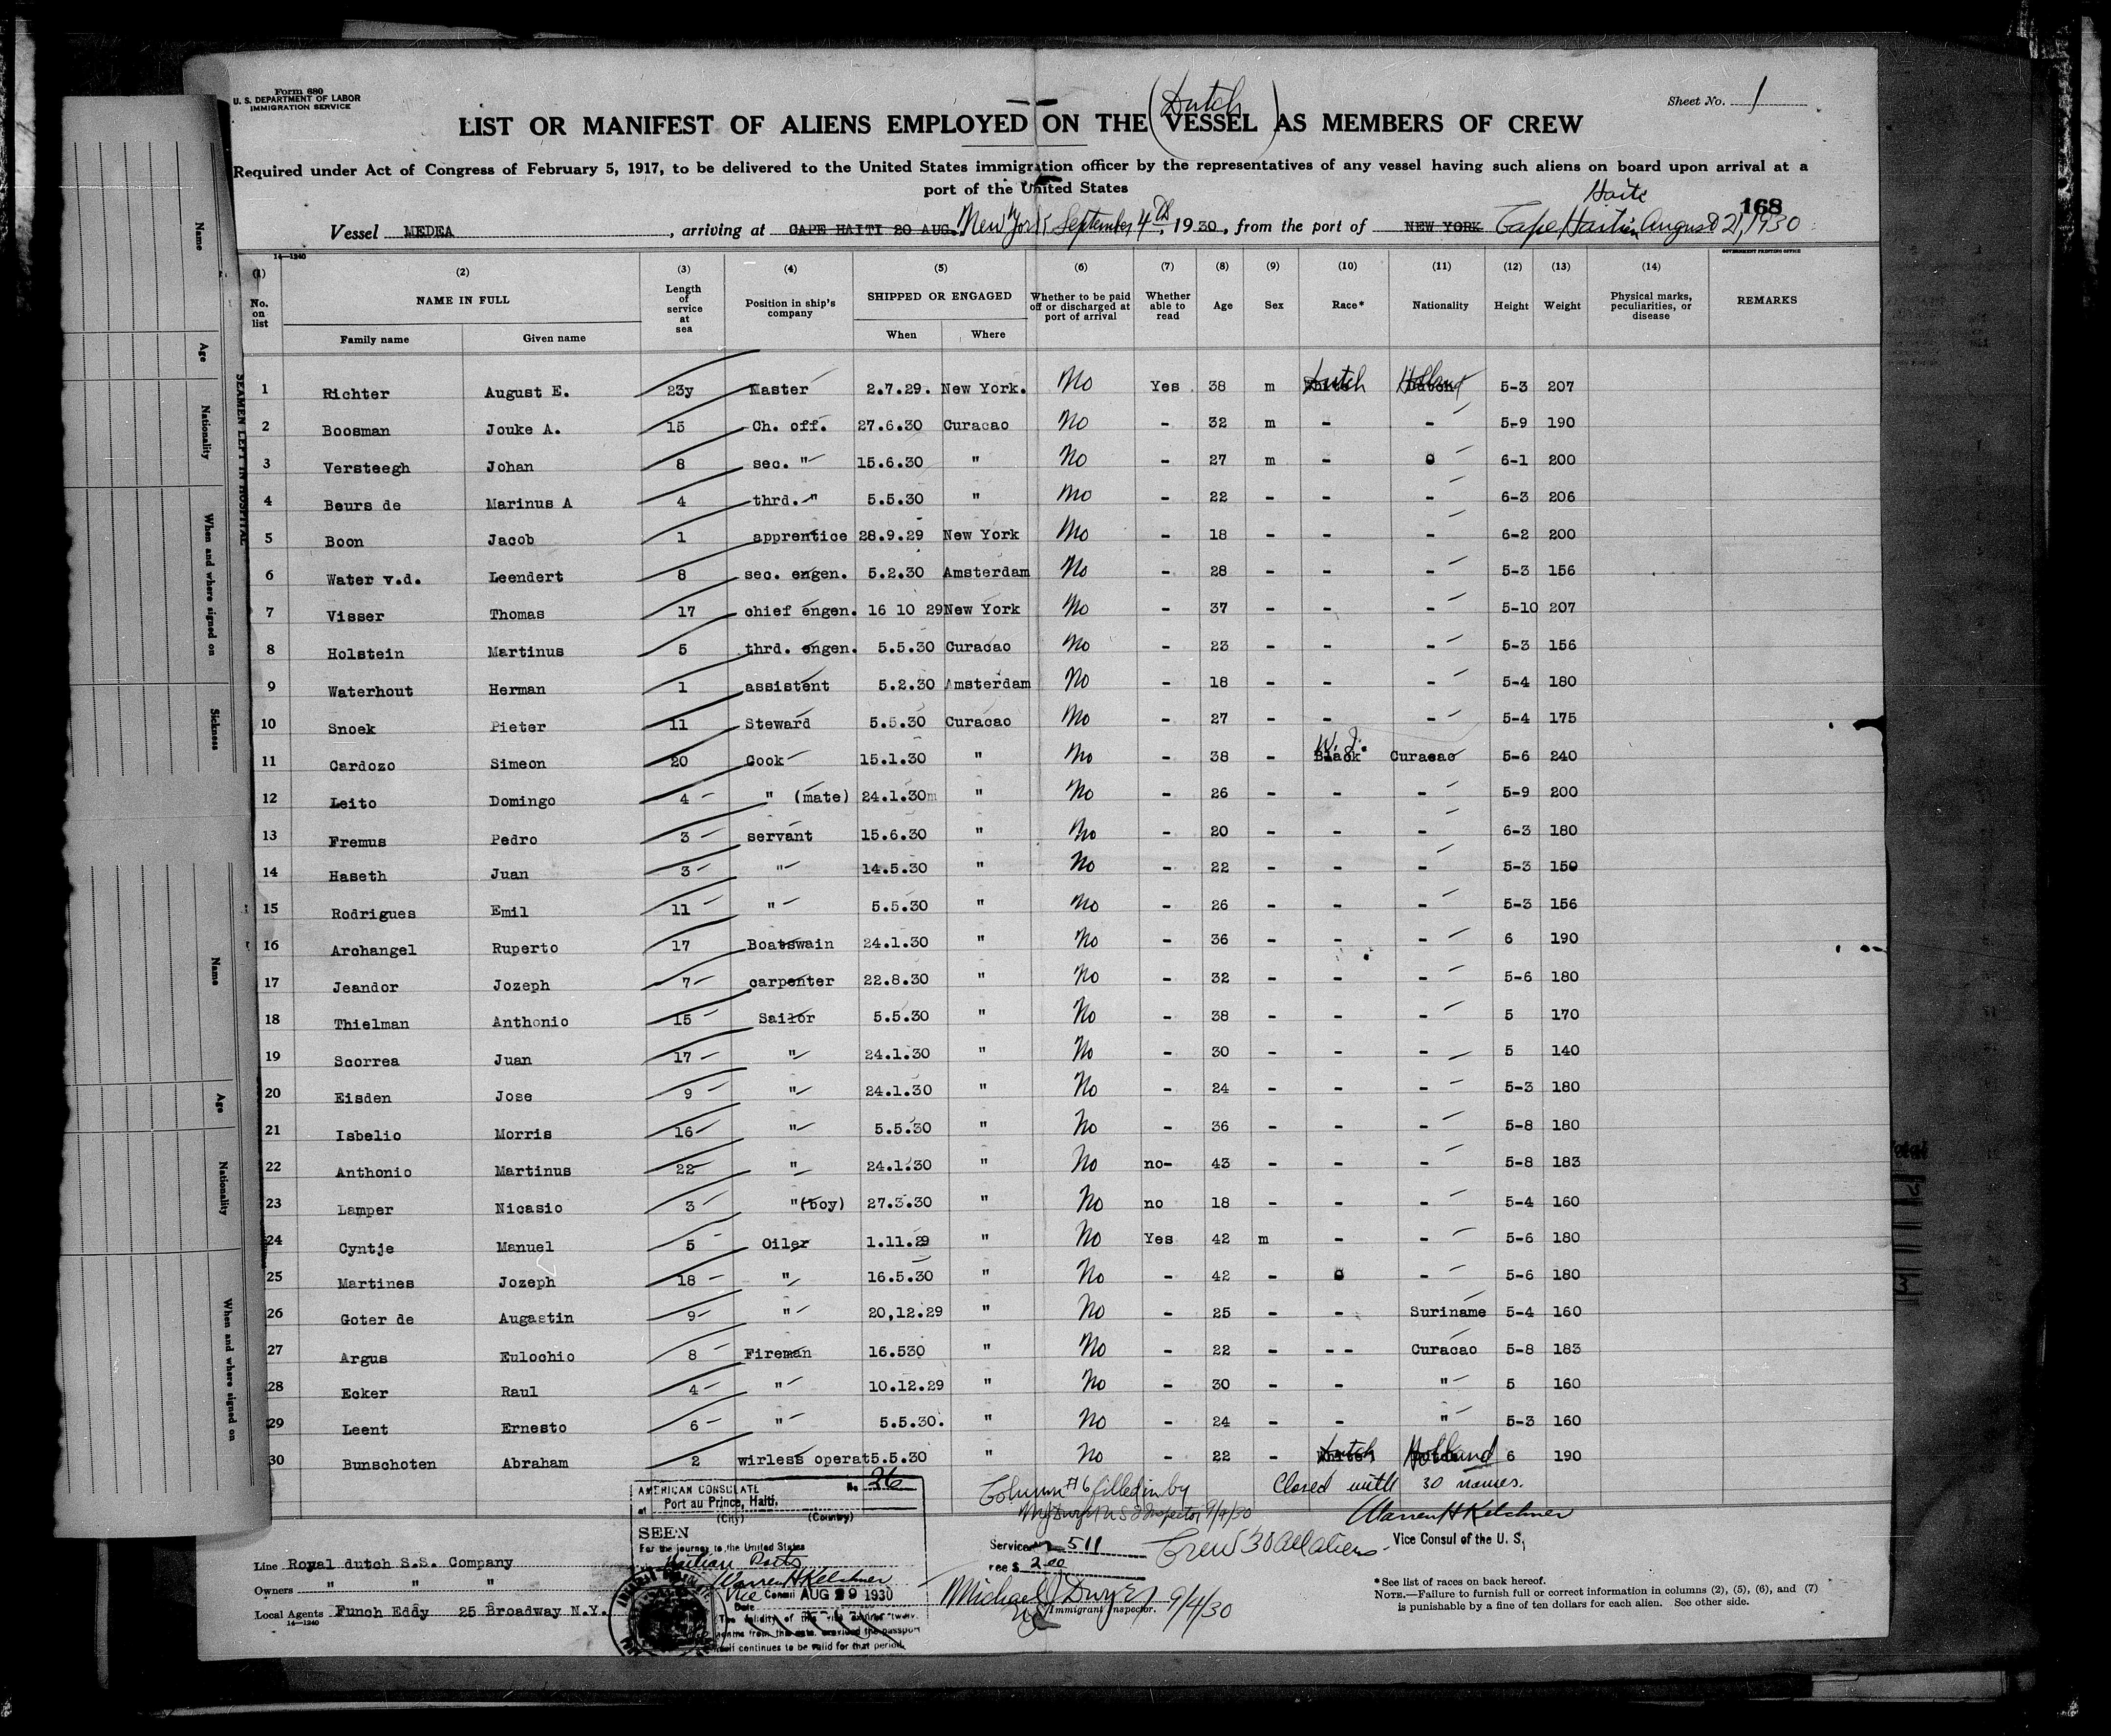 Form 680
U. S. DEPARTMENT OF LABOR
IMMIGRATION SERVICE
Sheet No. 1
(Dutch)
LIST OR MANIFEST OF ALIENS EMPLOYED ON THE VESSEL AS MEMBERS OF CREW
Required under Act of Congress of February 5, 1917, to be delivered to the United States immigration officer by the representatives of any vessel having such aliens on board upon arrival at a
port of the United States
Haiti
168
Vessel MEDEA, arriving at CAPE HAITI 20 AUG. New York September 4th, 1930, from the port of NEW YORK Cape Haitien August 21, 1930
14—1240
GOVERNMENT PRINTING OFFICE
(1) (2) (3) (4) (5) (6) (7) (8) (9) (10) (11) (12) (13) (14)
No. on list NAME IN FULL Length of service at sea Position in ship's company SHIPPED OR ENGAGED Whether to be paid off or discharged at port of arrival Whether able to read Age Sex Race* Nationality Height Weight Physical marks, peculiarities, or disease REMARKS
Family name Given name When Where
1 Richter August E. 23y Master 2.7.29. New York. No Yes 38 m Dutch Holland 5-3 207
2 Boosman Jouke A. 15 Ch. off. 27.6.30 Curacao No - 32 m - - 5-9 190
3 Versteegh Johan 8 sec. " 15.6.30 " No - 27 m - - 6-1 200
4 Beurs de Marinus A 4 thrd. " 5.5.30 " No - 22 - - - 6-3 206
5 Boon Jacob 1 apprentice 28.9.29 New York No - 18 - - - 6-2 200
6 Water v.d. Leendert 8 sec. engen. 5.2.30 Amsterdam No - 28 - - - 5-3 156
7 Visser Thomas 17 chief engen. 16 10 29 New York No - 37 - - - 5-10 207
8 Holstein Martinus 5 thrd. engen. 5.5.30 Curacao No - 23 - - - 5-3 156
9 Waterhout Herman 1 assistent 5.2.30 Amsterdam No - 18 - - - 5-4 180
10 Snoek Pieter 11 Steward 5.5.30 Curacao No - 27 - - - 5-4 175
11 Cardozo Simeon 20 Cook 15.1.30 " No - 38 - Black W. I. Curacao 5-6 240
12 Leito Domingo 4 " (mate) 24.1.30m " No - 26 - - - 5-9 200
13 Fremus Pedro 3 servant 15.6.30 " No - 20 - - - 6-3 180
14 Haseth Juan 3 " 14.5.30 " No - 22 - - - 5-3 150
15 Rodrigues Emil 11 " 5.5.30 " No - 26 - - - 5-3 156
16 Archangel Ruperto 17 Boatswain 24.1.30 " No - 36 - - - 6 190
17 Jeandor Jozeph 7 carpenter 22.8.30 " No - 32 - - - 5-6 180
18 Thielman Anthonio 15 Sailor 5.5.30 " No - 38 - - - 5 170
19 Scorrea Juan 17 " 24.1.30 " No - 30 - - - 5 140
20 Eisden Jose 9 " 24.1.30 " No - 24 - - - 5-3 180
21 Isbelio Morris 16 " 5.5.30 " No - 36 - - - 5-8 180
22 Anthonio Martinus 22 " 24.1.30 " No no- 43 - - - 5-8 183
23 Lamper Nicasio 3 "(boy) 27.3.30 " No no 18 - - - 5-4 160
24 Cyntje Manuel 5 Oiler 1.11.29 " No Yes 42 m - - 5-6 180
25 Martines Jozeph 18 " 16.5.30 " No - 42 - - - 5-6 180
26 Goter de Augastin 9 " 20,12.29 " No - 25 - - Suriname 5-4 160
27 Argus Eulochio 8 Fireman 16.530 " No - 22 - - - Curacao 5-8 183
28 Ecker Raul 4 " 10.12.29 " No - 30 - - " 5 160
29 Leent Ernesto 6 " 5.5.30. " No - 24 - - " 5-3 160
30 Bunschoten Abraham 2 wirless operat 5.5.30 " No - 22 - Dutch Holland 6 190
AMERICAN CONSULATE No 26
at Port au Prince, Haiti.
(City) (Country)
SEEN
For the journey to the United States
Haitian Ports
Warren H Kelchner
Vice Consul AUG 29 1930
Date
(The validity of this visa expires twelve
months from this date, provided the passport
itself continues to be valid for that period.
Column #6 filled in by
U S Inspector 9/4/30
Closed with 30 names.
Warren H Kelchner
Vice Consul of the U. S.
Service 511
Fee $ 2.00
Crew 30 all aliens.
Michael J Dwyer 9/4/30
Immigrant Inspector.
Line Royal dutch S.S. Company
Owners " " "
Local Agents Funch Eddy 25 Broadway N.Y.
14—1240
*See list of races on back hereof.
NOTE.—Failure to furnish full or correct information in columns (2), (5), (6), and (7)
is punishable by a fine of ten dollars for each alien. See other side.
SEAMEN LEFT IN HOSPITAL
Name
Age
Nationality
When and where signed on
Sickness
Name
Age
Nationality
When and where signed on